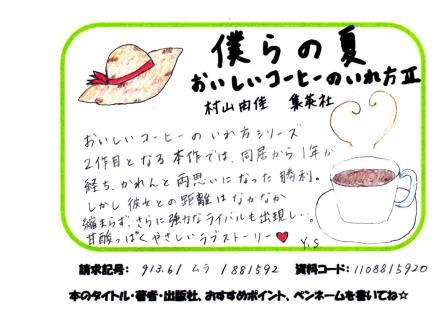 僕らの夏
おいしいコーヒーのいれ方Ⅱ
村山由佳 集英社
おいしいコーヒーのいれ方シリーズ
2作目となる本作では、同居から1年が
経ち、かれんと両思いになった勝利。
しかし彼女との距離はなかなか
縮まらず、さらに強力なライバルも出現し…。
甘酸っぱくやさしいラブストーリー♥
Y,S
請求記号: 913.61 ムラ 1 881592 資料コード: 1108815920
本のタイトル・著者・出版社、おすすめポイント、ペンネームを書いてね☆